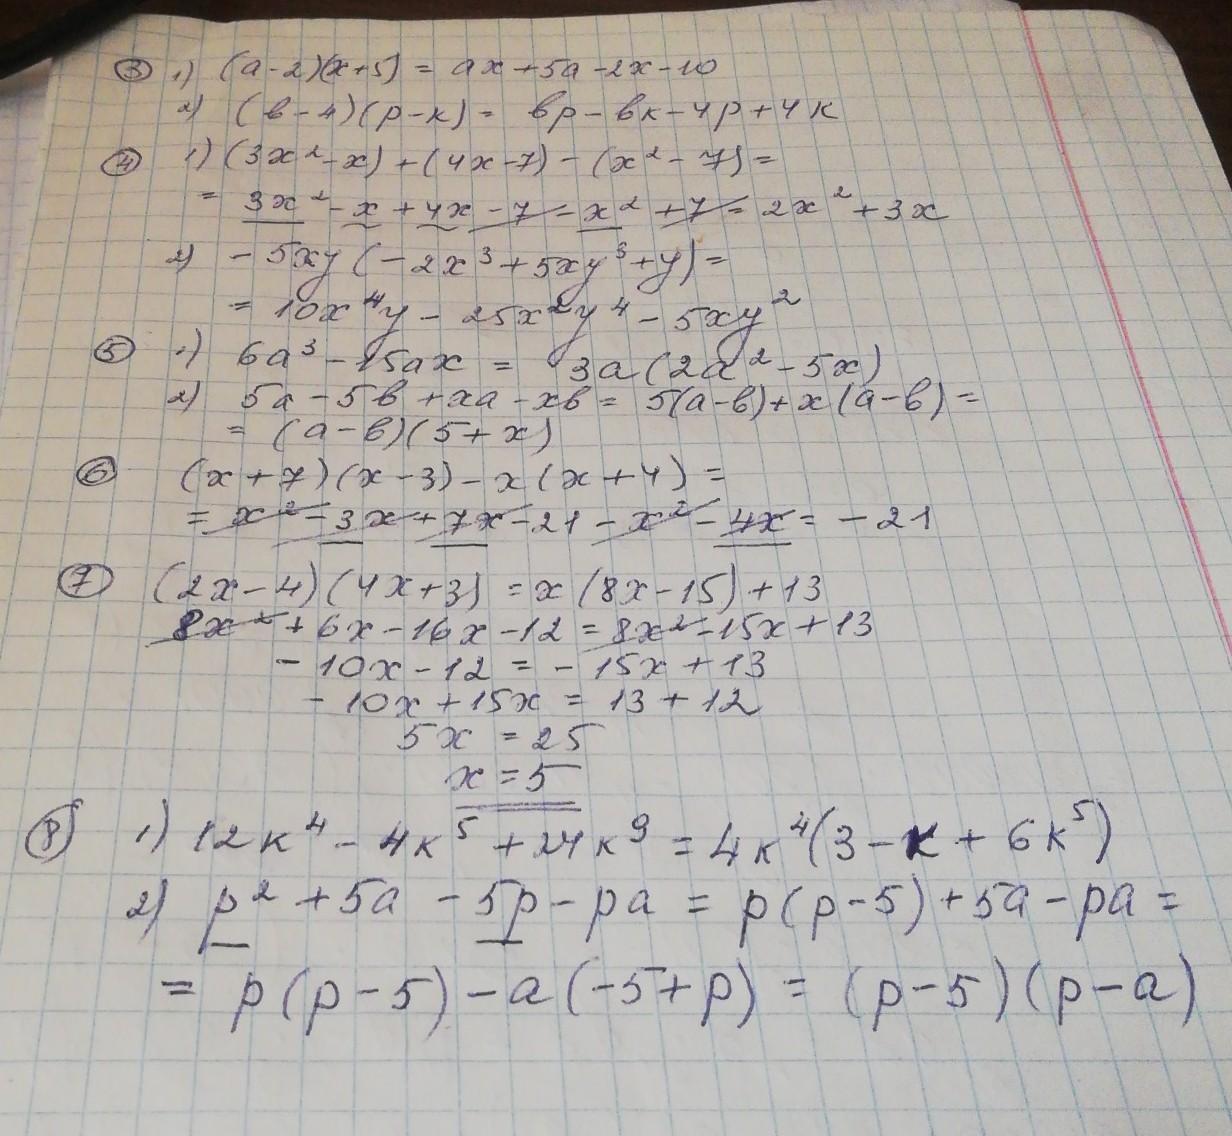 ③ 1) (a-2)(x+5) = ax+5a-2x-10
2) (в-4)(p-к) = вp-вк-4p+4к
④ 1) (3x²-x)+(4x-7)-(x²-7)=
= 3x²-x+4x-7-x²+7= 2x²+3x
2) -5xy(-2x³+5xy³+y)=
= 10x⁴y-25x²y⁴-5xy²
⑤ 1) 6a³-15ax = 3a(2a²-5x)
2) 5a-5в+xa-xв= 5(a-в)+x(a-в)=
= (a-в)(5+x)
⑥ (x+7)(x-3)-x(x+4)=
= x²-3x+7x-21-x²-4x= -21
⑦ (2x-4)(4x+3)=x(8x-15)+13
8x²+6x-16x-12=8x²-15x+13
-10x-12 = -15x+13
-10x+15x = 13+12
5x = 25
x=5
⑧ 1) 12к⁴-4к⁵+24к⁹=4к⁴(3-к+6к⁵)
2) p²+5a-5p-pa = p(p-5)+5a-pa=
= p(p-5)-a(-5+p) = (p-5)(p-a)